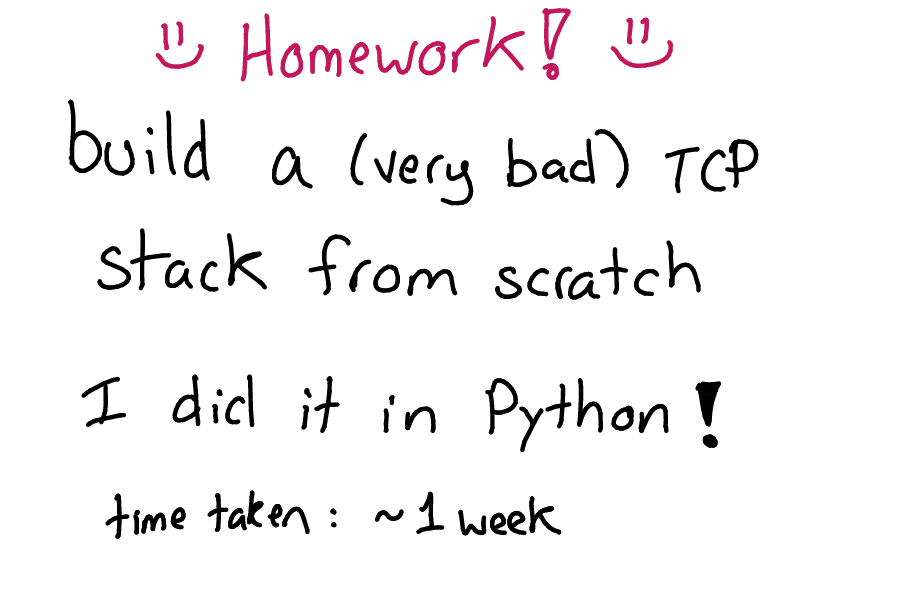 Homework!
build a (very bad) TCP
stack from scratch
I did it in Python!
time taken: ~1 week